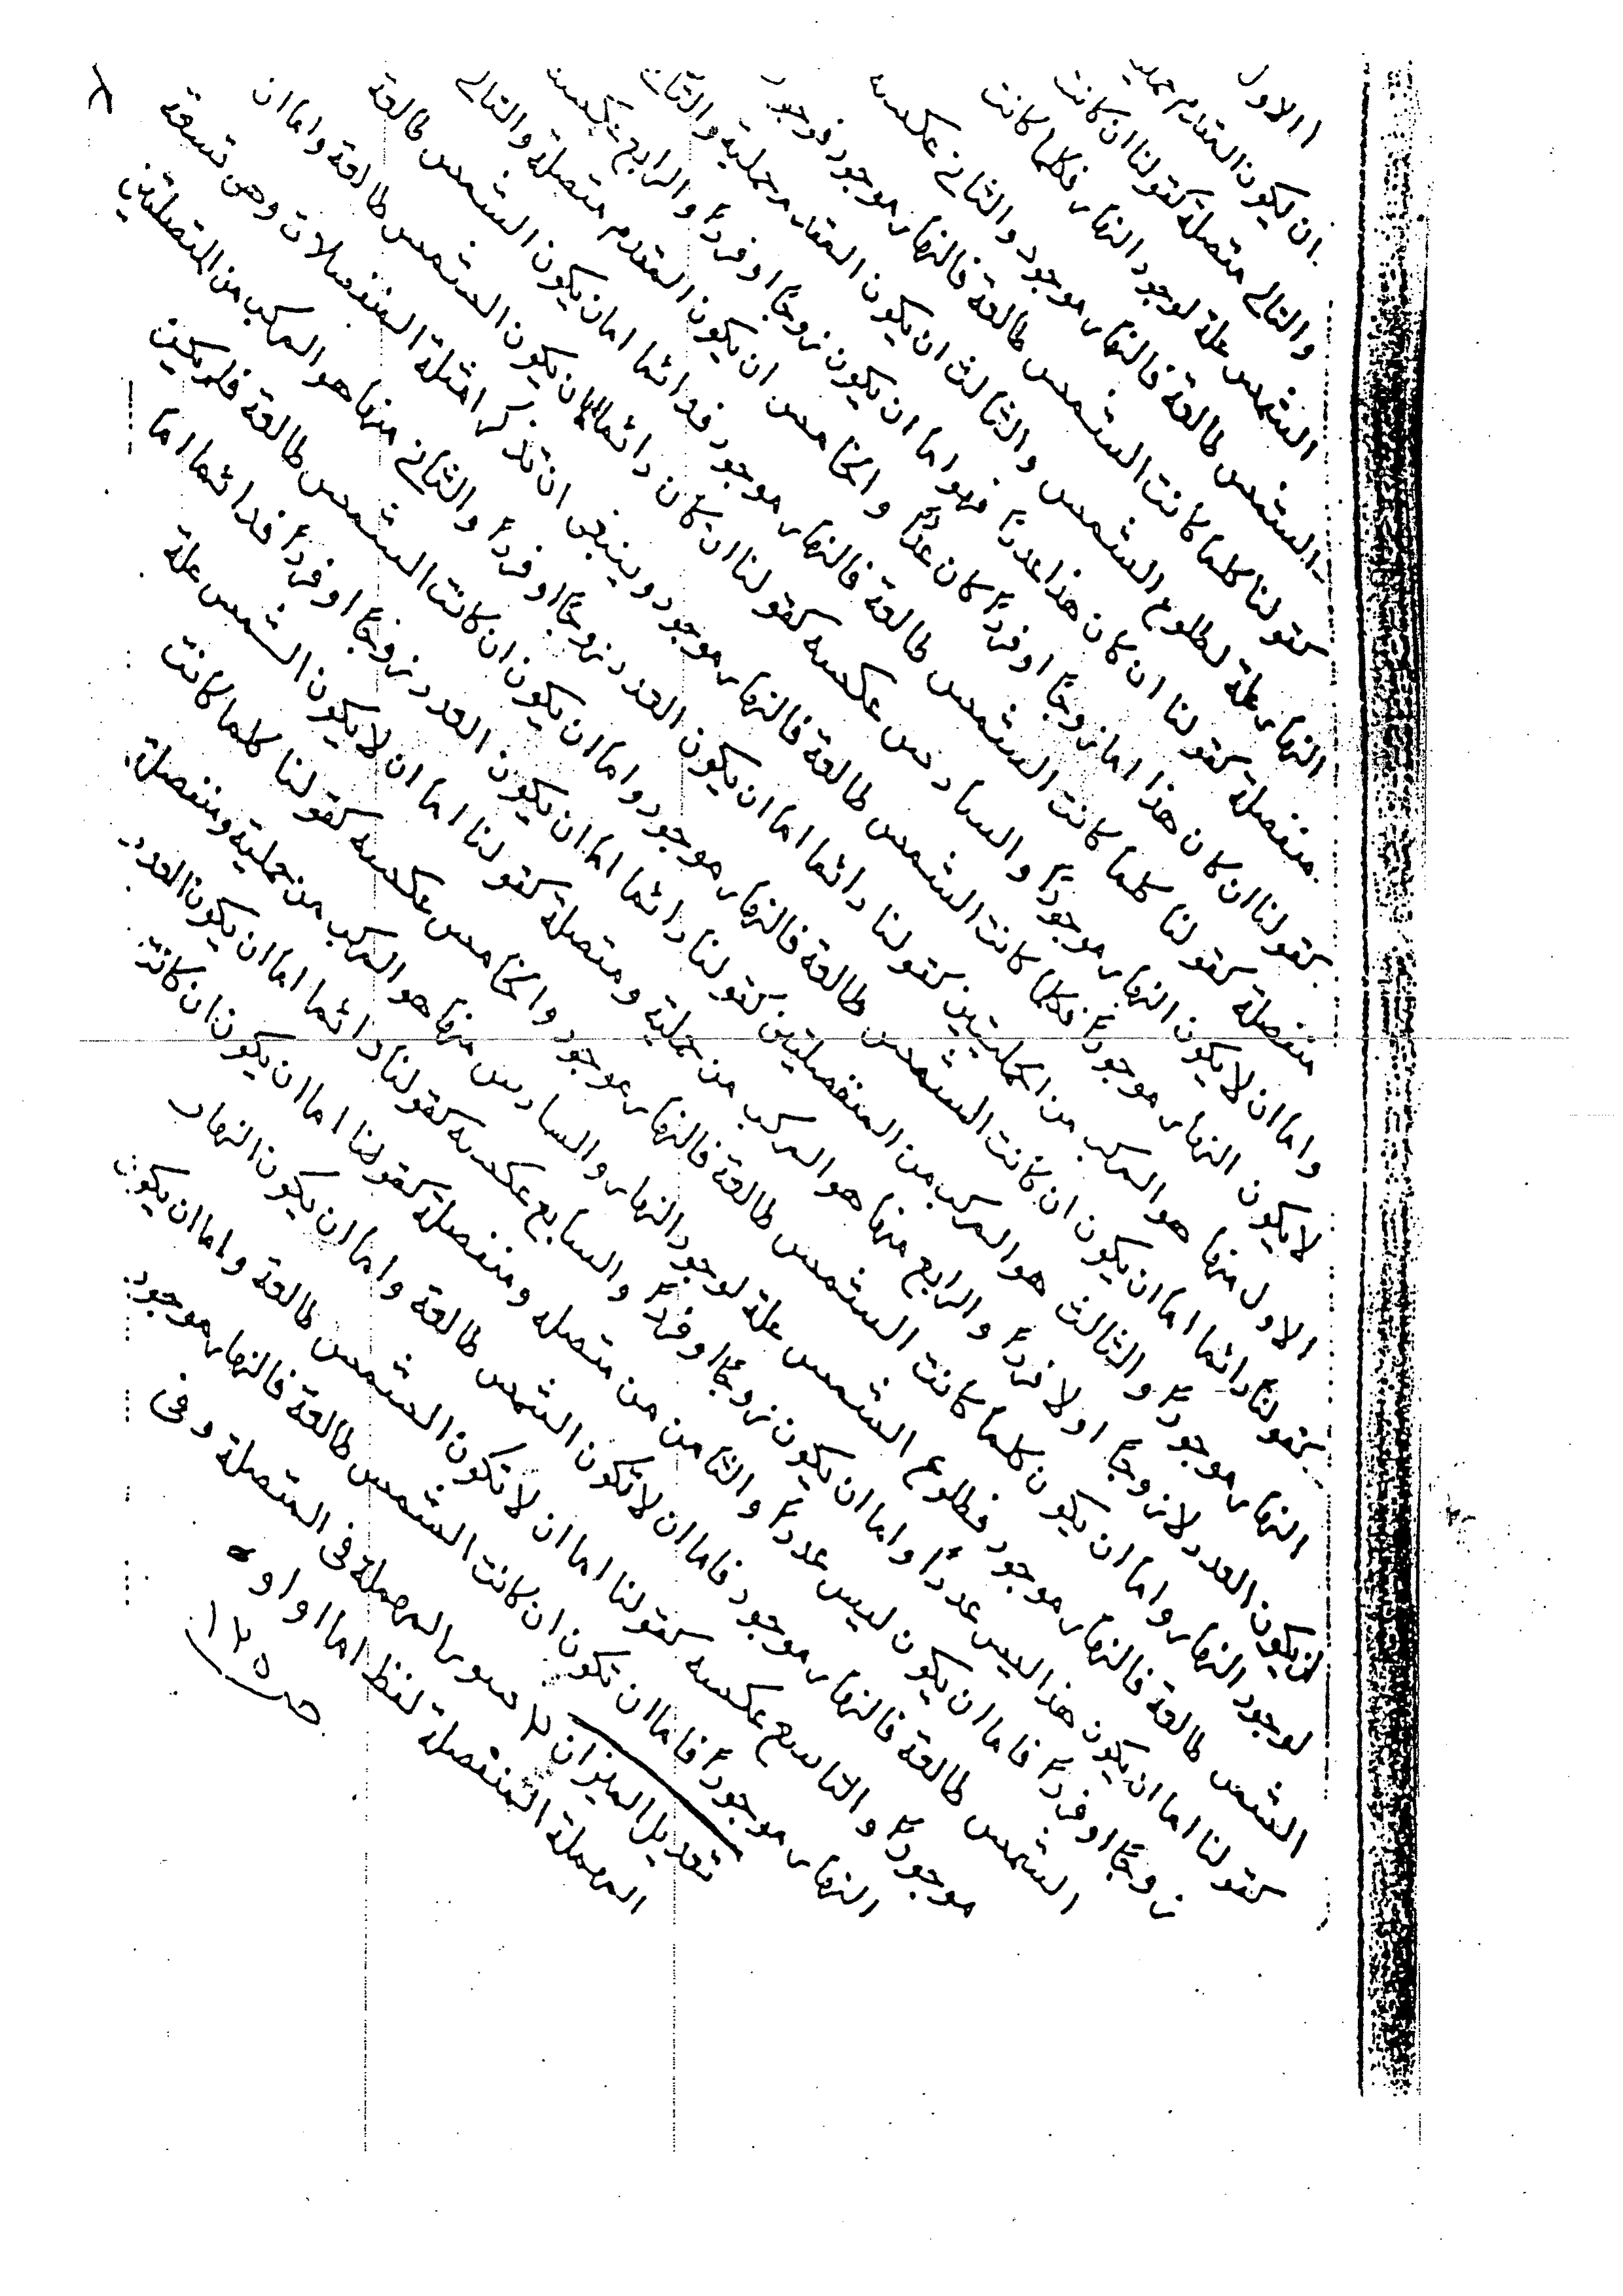 ١ الاول
ان يكون المقدم حملية
والتالي متصلة كقولنا ان كانت
الشمس علة لوجود النهار فكلما كانت
الشمس طالعة فالنهار موجود والثاني عكسه
كقولنا كلما كانت الشمس طالعة فالنهار موجود فوجود
النهار علة لطلوع الشمس والثالث ان يكون المقدم حملية والتالي
منفصلة كقولنا ان كان هذا عدداً فهو اما ان يكون زوجاً او فرداً والرابع بعكسه
كقولنا ان كان هذا اما زوجاً او فرداً كان عدداً والخامس ان يكون المقدم متصلة والتالي
منفصلة كقولنا كلما كانت الشمس طالعة فالنهار موجود فدائما اما ان يكون الشمس طالعة
واما ان لا يكون النهار موجوداً والسادس عكسه كقولنا ان كان دائما اما ان يكون الشمس طالعة واما ان
لا يكون النهار موجوداً فكلما كانت الشمس طالعة فالنهار موجود وينبغي ان تذكر امثلة المنفصلات وهي تسعة
الاول منها هو المركب من الحمليتين كقولنا دائما اما ان يكون العدد زوجاً او فرداً والثاني منها هو المركب من المتصلتين
كقولنا دائما اما ان يكون ان كانت الشمس طالعة فالنهار موجود واما ان يكون ان كانت الشمس طالعة فلم يكن
النهار موجوداً والثالث هو المركب من المنفصلتين كقولنا دائما اما ان يكون العدد زوجاً او فرداً فدائما اما
ان يكون العدد لا زوجاً او لا فرداً والرابع منها هو المركب من حملية ومتصلة كقولنا اما ان لا يكون الشمس علة
لوجود النهار واما ان يكون كلما كانت الشمس طالعة فالنهار موجود والخامس عكسه كقولنا كلما كانت
الشمس طالعة فالنهار موجود فطلوع الشمس علة لوجود النهار والسادس منها هو المركب من حملية ومنفصلة
كقولنا اما ان يكون هذا ليس عدداً واما ان يكون زوجاً او فرداً والسابع عكسه كقولنا دائما اما ان يكون العدد
زوجاً او فرداً فاما ان يكون ليس عدداً والثامن من متصله ومنفصلة كقولنا اما ان يكون ان كانت
الشمس طالعة فالنهار موجود فاما ان لا تكون الشمس طالعة واما ان يكون النهار
موجوداً والتاسع عكسه كقولنا اما ان لا تكون الشمس طالعة واما ان يكون
النهار موجوداً فاما ان تكون ان كانت الشمس طالعة فالنهار موجود
تعديل الميزان ٢ سور المهملة في المتصلة وفي
المهملة المنفصلة لفظ اما او او ه
صـ ١٢٥